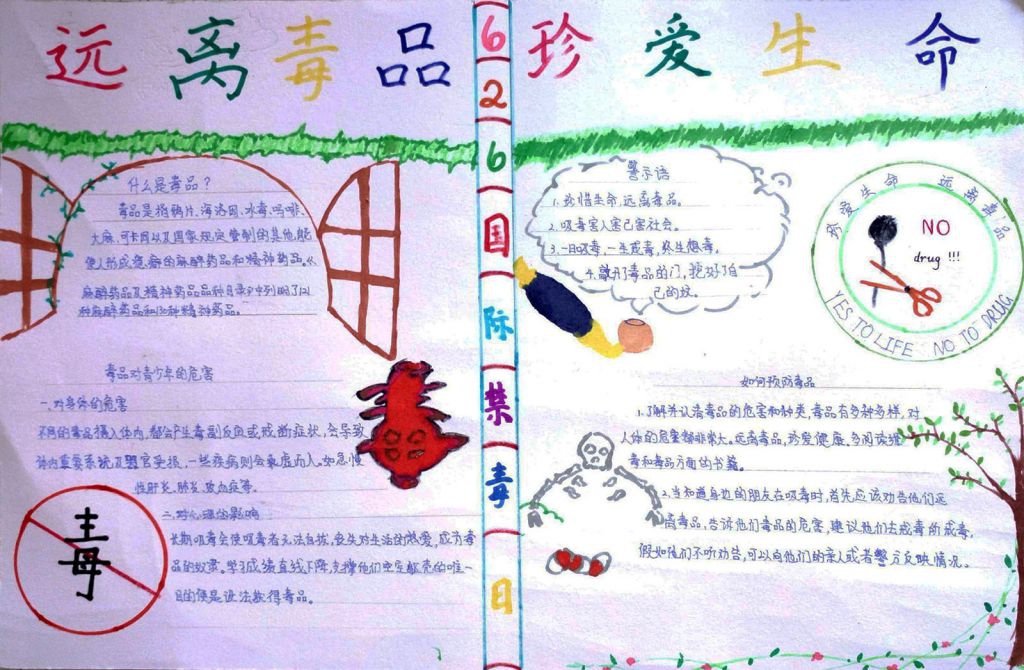 远离毒品
珍爱生命
626国际禁毒日
什么是毒品？
毒品是指鸦片、海洛因、冰毒、吗啡、
大麻、可卡因以及国家规定管制的其他能
使人形成瘾癖的麻醉药品和精神药品。《
麻醉药品及精神药品品种目录》中列明了121
种麻醉药品和130种精神药品。
毒品对青少年的危害
一、对身体的危害
不同的毒品摄入体内，都会产生毒副反应或戒断症状，会导致
体内重要系统及器官受损，一些疾病则会乘虚而入。如急慢
性肝炎、肺炎、败血症等。
二、对心理的影响
长期吸毒会使吸毒者无法自拔，丧失对生活的热爱，成为毒
品的奴隶。学习成绩直线下降，支撑他们空空躯壳的唯一
目的便是设法获得毒品。
毒
警示语
1、珍惜生命，远离毒品。
2、吸毒害人害己害社会。
3、一日吸毒，一生戒毒，终生想毒。
4、敲开了毒品的门，挖好了自
己的坟。
珍爱生命 远离毒品
NO
drug !!!
YES TO LIFE NO TO DRUG
如何预防毒品
1、了解并认清毒品的危害和种类，毒品有多种多样，对
人体的危害都非常大。远离毒品，珍爱健康，多阅读
毒和毒品方面的书籍。
2、当知道身边的朋友在吸毒时，首先应该劝告他们远
离毒品，告诉他们毒品的危害，建议他们去戒毒所戒毒，
假如他们不听劝告，可以向他们的亲人或者警方反映情况。